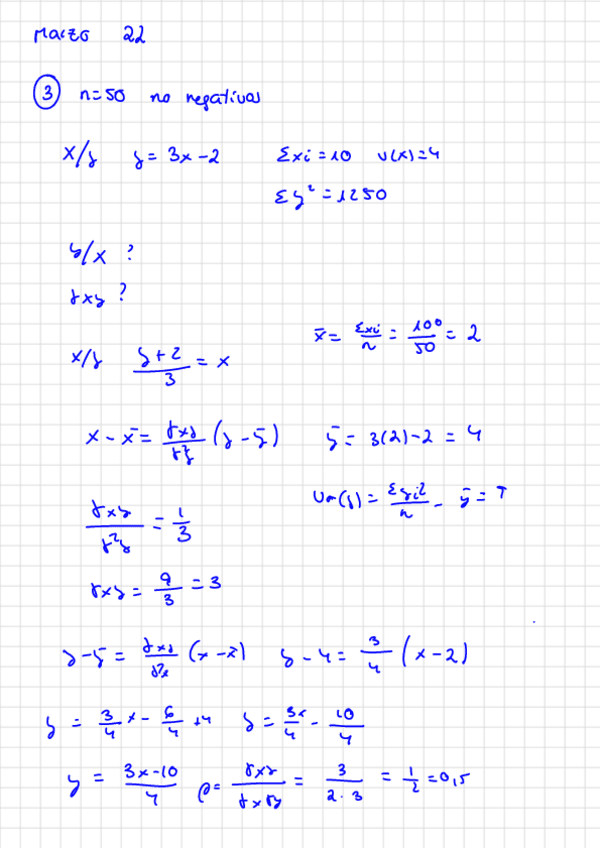 Marzo 22
③ n=50 no negativas
x/y y = 3x-2 Σxi = 10 v(x)=4
Σy² = 1250
y/x ?
γxy ?
x̄ = Σxi/n = 100/50 = 2
x/y (y+2)/3 = x
x - x̄ = γxy/γ²y (y - ȳ) ȳ = 3(2)-2 = 4
Var(y) = Σyi²/n - ȳ =
γxy/γ²y = 1/3
γxy = 9/3 = 3
y - ȳ = γxy/γ²x (x - x̄) y - 4 = 3/4 (x-2)
y = 3/4 x - 6/4 + 4 y = 3x/4 - 10/4
y = (3x-10)/4 ρ = γxy/γxγy = 3/(2·3) = 1/2 = 0,5